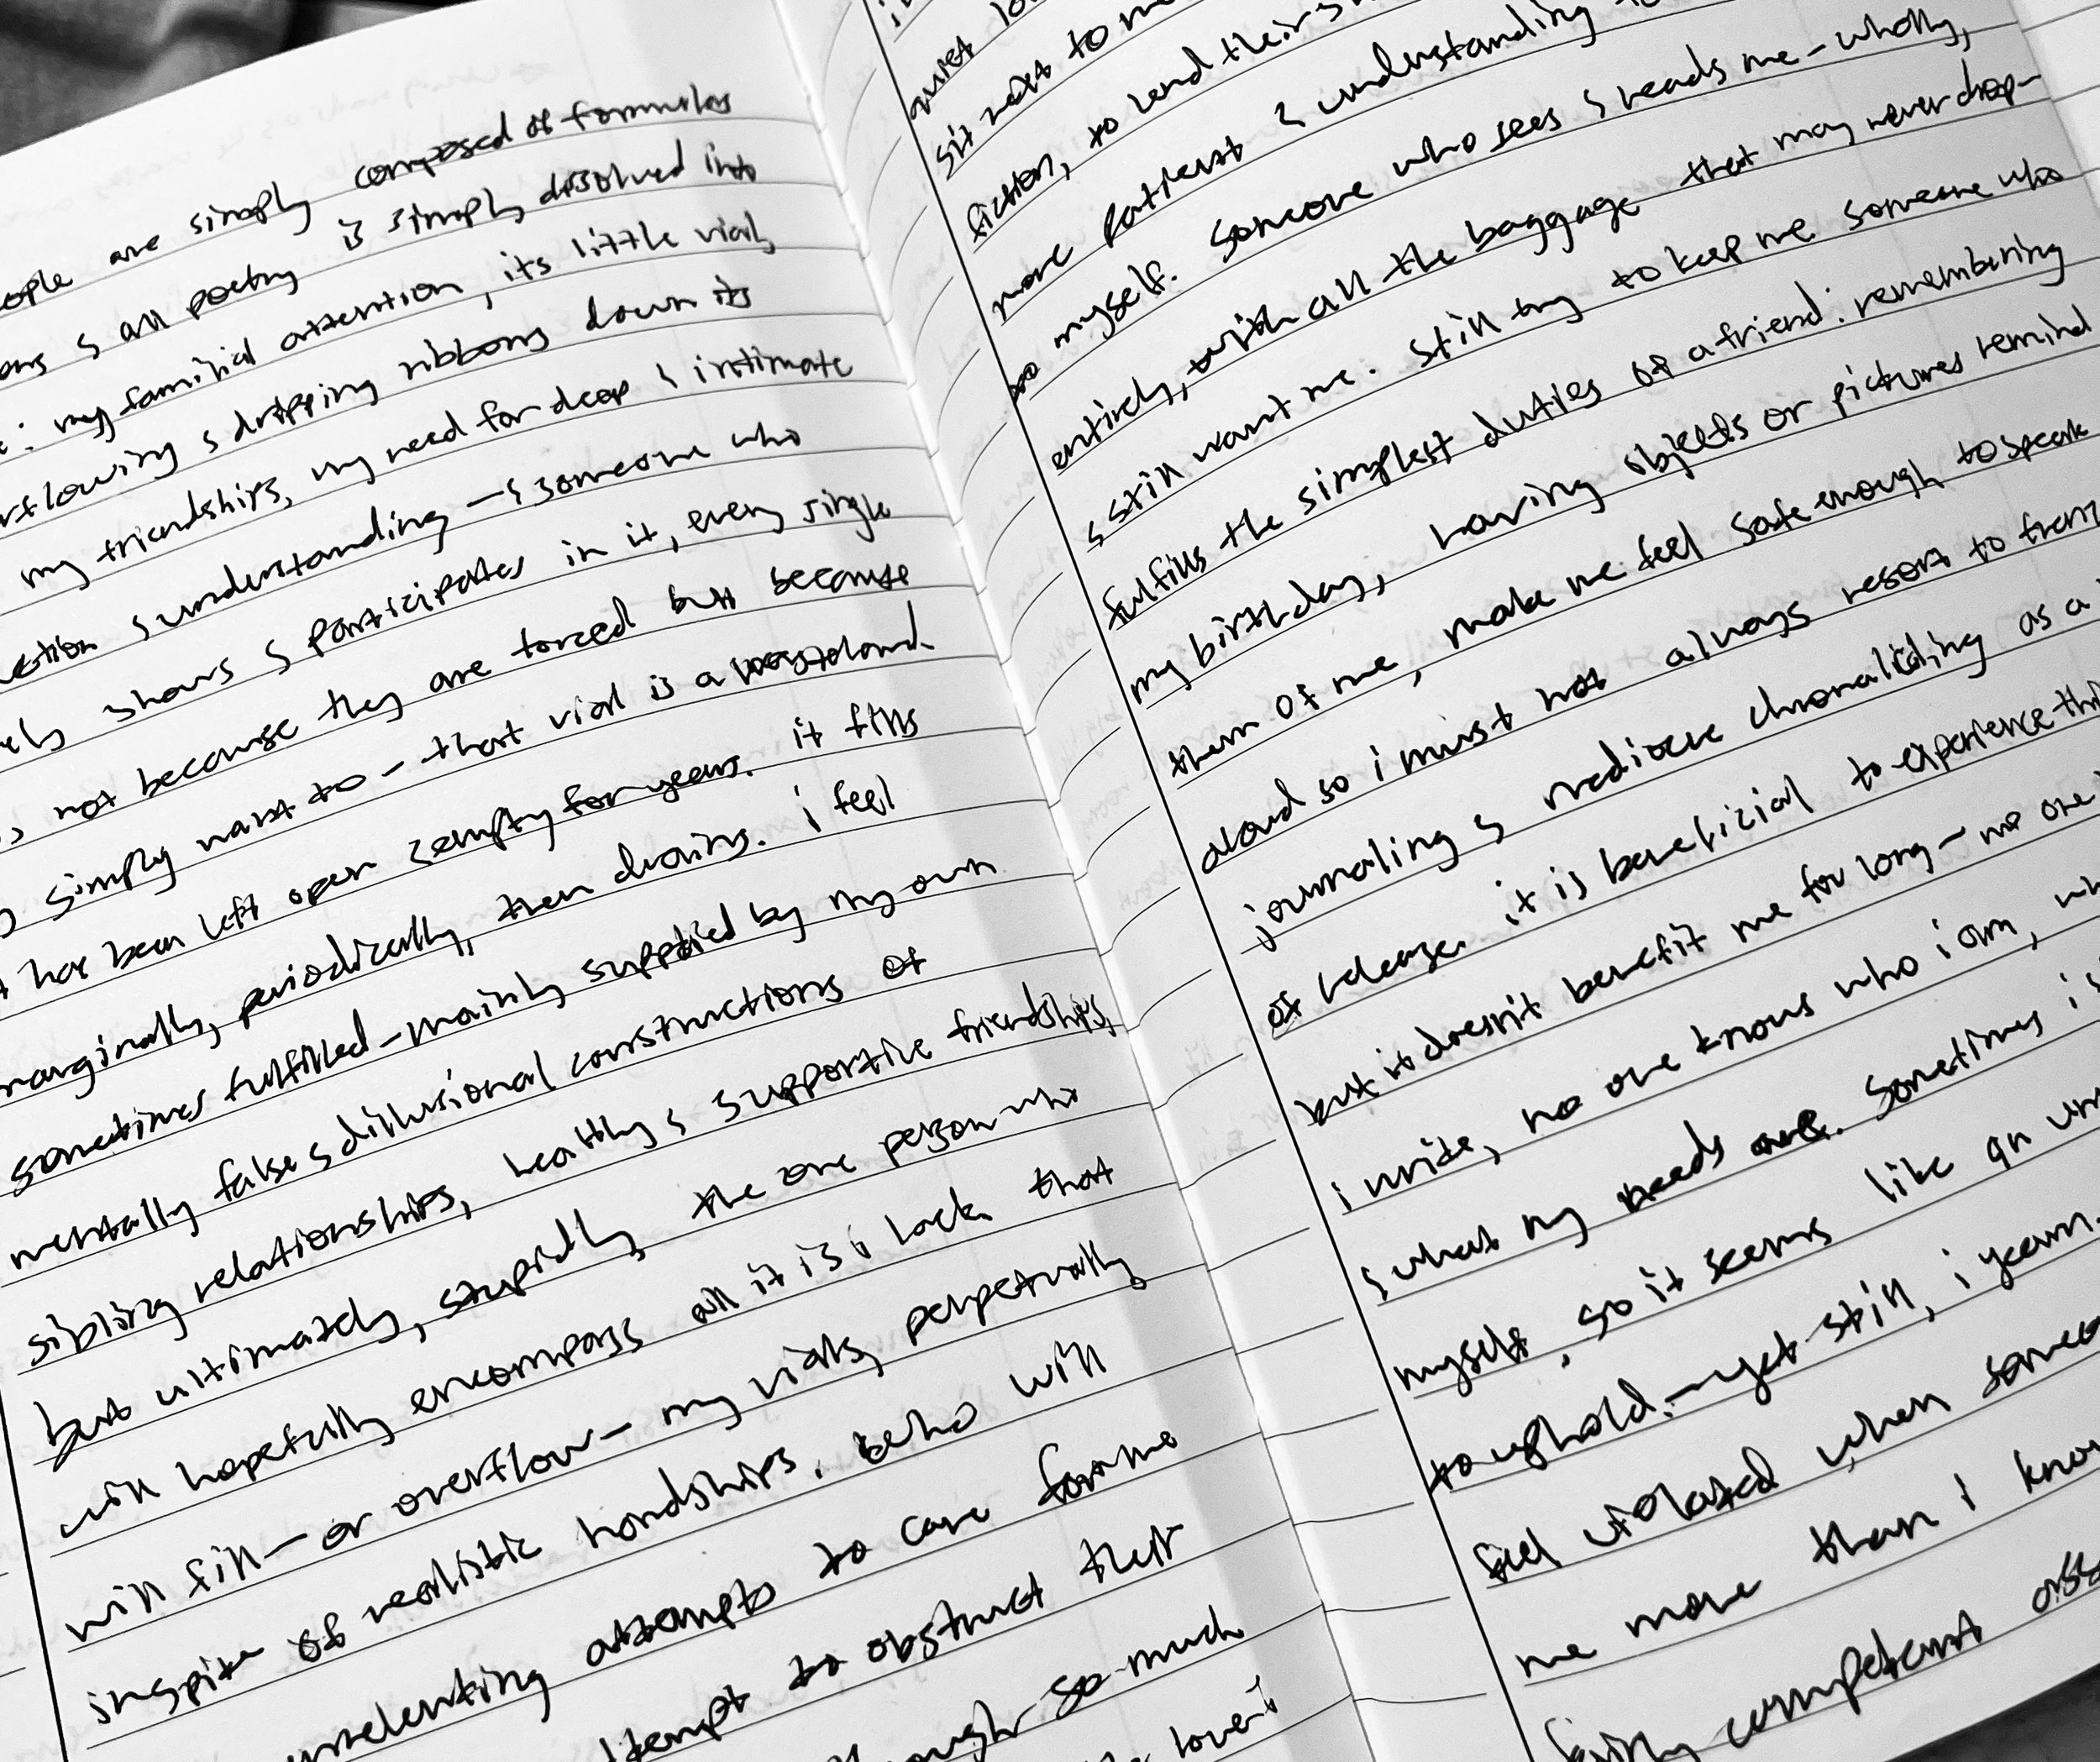 are simply composed of formulas
& all poetry is simply dissolved into
my familial attention, its little vials
& dripping ribbons down its
my friendships, my need for deep & intimate
& understanding — & someone who
shows & participates in it, every single
not because they are forced but because
simply want to – that vial is a wasteland
has been left open & empty for years. it fills
marginally, periodically, then drains. i feel
sometimes fulfilled – mainly supplied by my own
mentally false & dillusional constructions of
sibling relationships, healthy & supportive friendships,
but ultimately, stupidly, the one person who
will hopefully encompass all it is i lack that
will fill – or overflow – my vials, perpetually
inspite of realistic hardships. who will
attempts to care for me
to obstruct their
so much
sit next to me
fiction, to lend their
more patient & understanding
to myself. someone who sees & reads me – wholly,
entirely, with all the baggage that may never drop –
& still want me. still try to keep me. someone who
fulfills the simplest duties of a friend: remembering
my birthday, having objects or pictures remind
them of me, make me feel safe enough to speak
aloud so i must not always resort to
journaling & mediocre as a
of release. it is beneficial to experience
but it doesn't benefit me for long – no one
i write, no one knows who i am,
& what my needs are. sometimes
myself, so it seems like an
to uphold. – yet still, i yearn.
feel violated when
me more than i
competent